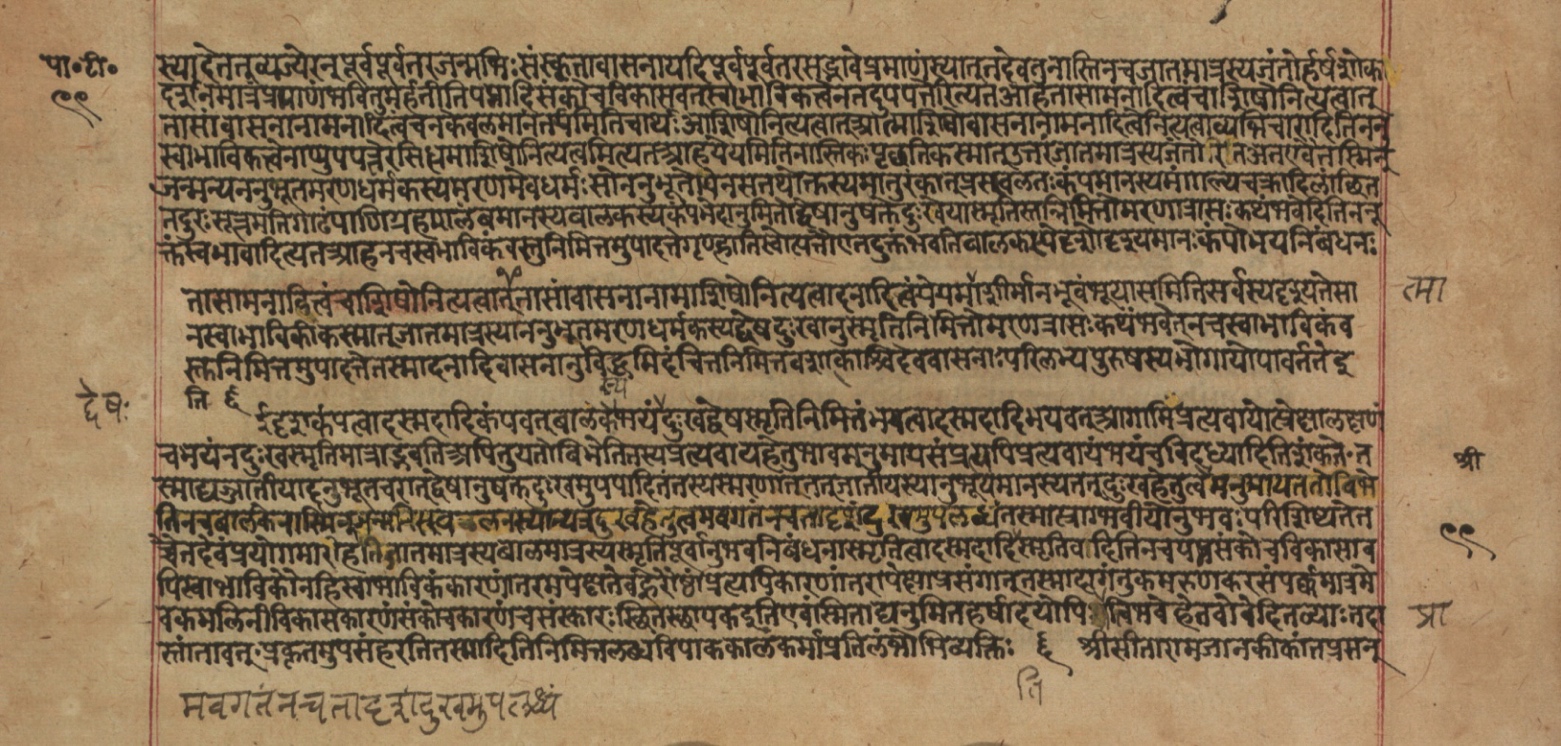 पा॰टी॰
९९
स्यादेतत्व्यज्येरन्पूर्वपूर्वतरजन्मभिःसंस्कृतावासनायदिपूर्वपूर्वतरसद्भावेप्रमाणंस्यात्तदेवतुनास्तिनचजातमात्रस्यजंतोर्हर्षशोक
दर्शनमात्रंप्रमाणंभवितुमर्हतीतिपद्मादिसंकोचविकासवत्स्वाभाविकत्वेनतदुपपत्तेरित्यतआहतासामनादित्वंचाशिषोनित्यत्वात्
तासांवासनानामनादित्वंचनकेवलमानंतर्यमितिचार्थःआशिषोनित्यत्वात्आत्माशिषोवासनानामनादित्वेनित्यत्वाव्यभिचारादितिननु
स्वाभाविकत्वेनाप्युपपत्तेरसिद्धमाशिषोनित्यत्वमित्यतआहयेयमितिनास्तिकःपृच्छतिकस्मात्उत्तरंजातमात्रस्यजंतोरितअतएवैतस्मिन्
जन्मन्यननुभूतमरणधर्मकस्यमरणमेवधर्मःसोननुभूतोयेनसतथोक्तस्यमातुरंकात्प्रस्खलतःकंपमानस्यमांगल्यचक्रादिलांछित
तदुरःसूत्रमतिगाढंपाणिग्राहमालंबमानस्यबालकस्यकंपभेदानुमिताद्वेषानुषक्तदुःखेयास्मृतिस्तन्निमित्तोमरणत्रासःकथंभवेदितिननू
क्तंस्वभावादित्यतआहनचस्वभाविकंवस्तुनिमित्तमुपादत्तेगृण्हातिस्वोत्पत्तौएतदुक्तंभवतिबालकस्येदृशोदृश्यमानःकंपोभयनिबंधनः
तासामनादित्वंचाशिषोनित्यत्वात्तासांवासनानामाशिषोनित्यत्वादनादित्वंयेयमाशीर्मानभूवंभूयासमितिसर्वस्यदृश्यतेसा
त्मा
नस्वाभाविकीकस्मात्जातमात्रस्याननुभूतमरणधर्मकस्यद्वेषदुःखानुस्मृतिनिमित्तोमरणत्रासःकथंभवेत्नचस्वाभाविकंव
स्तुनिमित्तमुपादत्तेतस्मादनादिवासनानुविद्धमिदंचित्तनिमित्तवशात्काश्चिदेववासनाःपतिलभ्यपुरुषस्यभोगायोपावर्ततेइ
ति ६
द्वेषः
ईदृशकंपत्वादस्मदादिकंपवत्बालकभयंदुःखद्वेषस्मृतिनिमित्तंभयत्वादस्मदादिभयवत्आगामिप्रत्यवायोत्प्रेक्षालक्षणं
चभयंनदुःखस्मृतिमात्राद्भवतिअपितुयतोबिभेतितस्यप्रत्यवायहेतुभावमनुमायसंप्रत्यपिप्रत्यवायंभयंचविदध्यादितिशंकतेत
श्री
स्माद्यज्जातीयादनुभूतचरात्द्वेषानुषक्तदुःखमुपपादितंतस्यस्मरणात्तज्जातीयस्यानुभूयमानस्यतत्दुःखहेतुत्वमनुमायततोबिभे
तिनचबालकेनास्मिन्जन्मनिस्खलनस्यान्यत्रदुःखहेतुत्वमवगतंनचतादृशंदुःखमुपलब्धंतस्मात्प्राग्भवीयोनुभवःपरिशिष्यतेत
९९
च्चैतदेवंप्रयोगमारोहतिजातमात्रस्यबालमात्रस्यस्मृतिपूर्वानुभवनिबंधनास्मृतित्वादस्मदादिस्मृतिवदितिनचपद्मसंकोचविकासाव
पिस्वाभाविकौनहिस्वाभाविकंकारणांतरमपेक्षतेवह्नेरौष्ण्यंप्रत्यपिकारणांतरापेक्षाप्रसंगात्तस्मादागंतुकमरुणकरसंपर्कमात्रमे
वकमलिनीविकासकारणंसंकोचकारणंचसंस्कारःस्थितस्थापकइतिएवंस्मिताद्यनुमितहर्षादयोपिप्राचिभवेहेतवोवेदितव्याःतदा
प्रा
स्तांतावत्प्रकृतमुपसंहरतितस्मादितिनिमित्तलब्धविपाककालकर्माप्रतिलंभोभिव्यक्तिः ६ श्रीसीतारामजानकीकांतप्रसन्
मवगतंनचतादृशंदुःखमुपलब्धं
ति